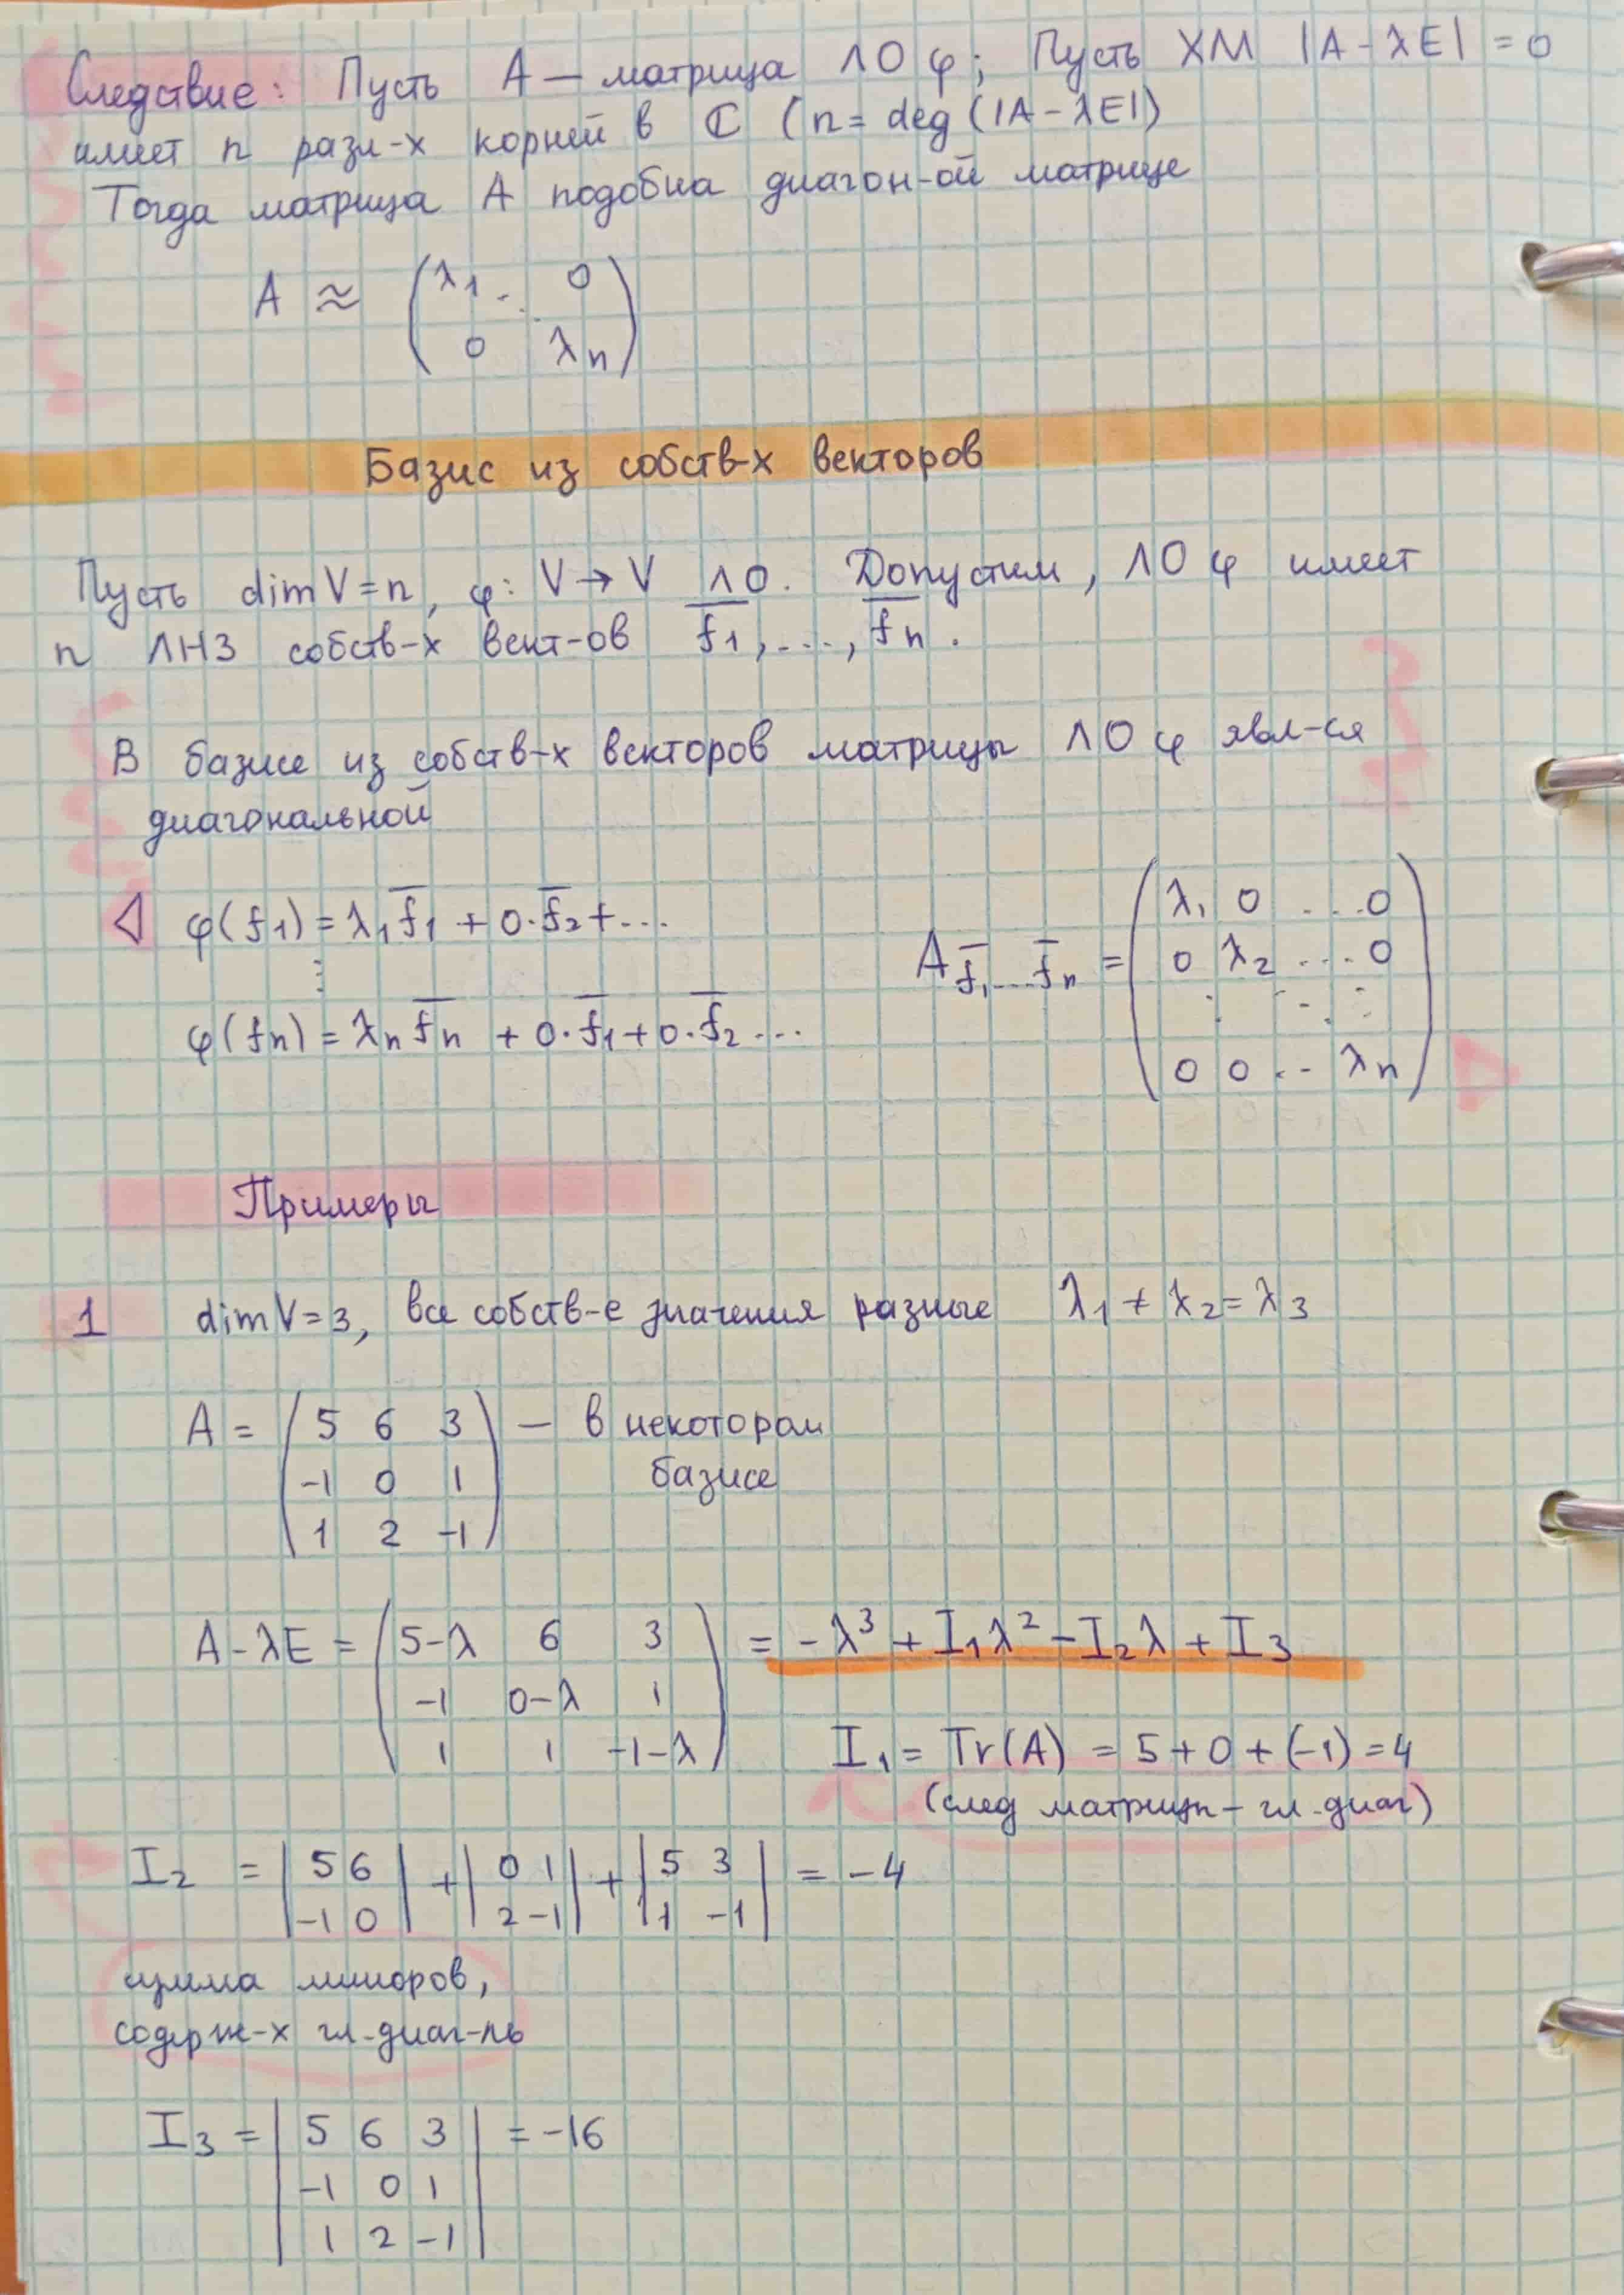 Следствие: Пусть A — матрица ЛО φ; Пусть ХМ |A - λE| = 0
имеет n разл-х корней в ℂ (n = deg(|A - λE|)
Тогда матрица A подобна диагон-ой матрице
A ≈ (λ1 . . 0
0 λn)
Базис из собств-х векторов
Пусть dim V = n, φ: V → V ЛО. Допустим, ЛО φ имеет
n ЛНЗ собств-х вект-ов f̅1, ..., f̅n.
В базисе из собств-х векторов матрицы ЛО φ явл-ся
диагональной
◁ φ(f1) = λ1f̅1 + 0·f̅2 + ...
⋮
φ(fn) = λn f̅n + 0·f̅1 + 0·f̅2 ...
A f̅1...f̅n = (λ1 0 ... 0
0 λ2 ... 0
⋮ ⋱ ⋮
0 0 .. λn)
Примеры
1 dim V = 3, все собств-е значения разные λ1 ≠ λ2 = λ3
A = (5 6 3
-1 0 1
1 2 -1) — в некотором
базисе
A - λE = (5-λ 6 3
-1 0-λ 1
1 1 -1-λ) = -λ³ + I1λ² - I2λ + I3
I1 = Tr(A) = 5 + 0 + (-1) = 4
(след матрицы - гл. диаг)
I2 = |5 6
-1 0| + |0 1
2 -1| + |5 3
1 -1| = -4
сумма миноров,
содерж-х гл. диаг-ль
I3 = |5 6 3
-1 0 1
1 2 -1| = -16